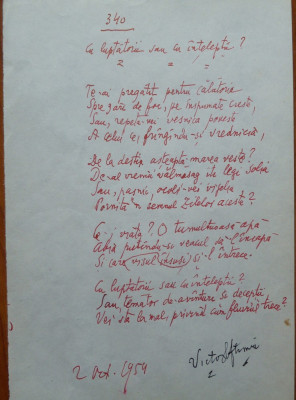 340
Cu luptătorii sau cu înțelepții?
Te-ai pregătit pentru călătorie
Spre gări de foc, pe înspumate creste,
Sau, repeta-vei veșnica poveste
A celui ce, frângându-și vrednicia,
De la destin așteaptă marea veste?
De-al vremii vălmășag te legi
Sau, pașnic, ocoli-vei vijelia
Pornită-n semnul zeilor acestă?
Ce-i viața? O tumultuoasă apă
Abia putându-se veacul să-l încapă
Și care visul însuși și-l întrece.
Cu luptătorii sau cu înțelepții?
Sau, temător de-avântare și decepții,
Vei sta pe mal, privind cum fluviul trece?
2 Oct. 1954
Victor Eftimiu